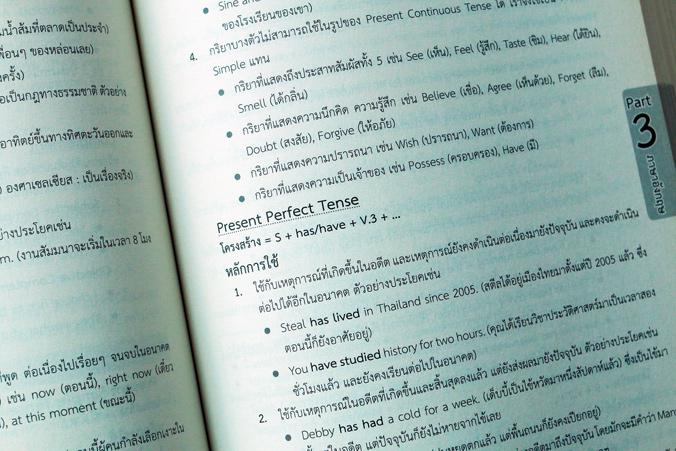 มน้ำส้มที่ตลาดเป็นประจำ)
พื่อนๆ ของหล่อนเลย)
ครั้ง)
อเป็นกฎทางธรรมชาติ ตัวอย่าง
อาทิตย์ขึ้นทางทิศตะวันออกและ
องศาเซลเซียส : เป็นเรื่องจริง)
ย่างประโยคเช่น
m. (งานสัมมนาจะเริ่มในเวลา 8 โมง
ที่พูด ต่อเนื่องไปเรื่อยๆ จนจบในอนาคต
เช่น now (ตอนนี้), right now (เดี๋ยว
), at this moment (ขณะนี้)
Sine and
ของโรงเรียนของเขา)
4. กริยาบางตัวไม่สามารถใช้ในรูปของ Present Continuous Tense ได้
Simple แทน
กริยาที่แสดงถึงประสาทสัมผัสทั้ง 5 เช่น See (เห็น), Feel (รู้สึก), Taste (ชิม), Hear (ได้ยิน),
Smell (ได้กลิ่น)
กริยาที่แสดงความนึกคิด ความรู้สึก เช่น Believe (เชื่อ), Agree (เห็นด้วย), Forget (ลืม),
Doubt (สงสัย), Forgive (ให้อภัย)
กริยาที่แสดงความปรารถนา เช่น Wish (ปรารถนา), Want (ต้องการ)
กริยาที่แสดงความเป็นเจ้าของ เช่น Possess (ครอบครอง), Have (มี)
Present Perfect Tense
โครงสร้าง = S + has/have + V.3 + ...
หลักการใช้
1. ใช้กับเหตุการณ์ที่เกิดขึ้นในอดีต และเหตุการณ์ยังคงดำเนินต่อเนื่องมายังปัจจุบัน และคงจะดำเนิน
ต่อไปได้อีกในอนาคต ตัวอย่างประโยคเช่น
Steal has lived in Thailand since 2005. (สตีลได้อยู่เมืองไทยมาตั้งแต่ปี 2005 แล้ว ซึ่ง
ตอนนี้ก็ยังอาศัยอยู่)
You have studied history for two hours. (คุณได้เรียนวิชาประวัติศาสตร์มาเป็นเวลาสอง
ชั่วโมงแล้ว และยังคงเรียนต่อไปในอนาคต)
2. ใช้กับเหตุการณ์ในอดีตที่เกิดขึ้นและสิ้นสุดลงแล้ว แต่ยังส่งผลมายังปัจจุบัน ตัวอย่างประโยคเช่น
Debby has had a cold for a week. (เด็บบี้เป็นไข้หวัดมาหนึ่งสัปดาห์แล้ว) ซึ่งเป็นไข้มา
ในอดีต แต่ปัจจุบันก็ยังไม่หายจากไข้เลย
แต่พื้นถนนก็ยังคงเปียกอยู่)
Part
3
ภาษาอังกฤษ